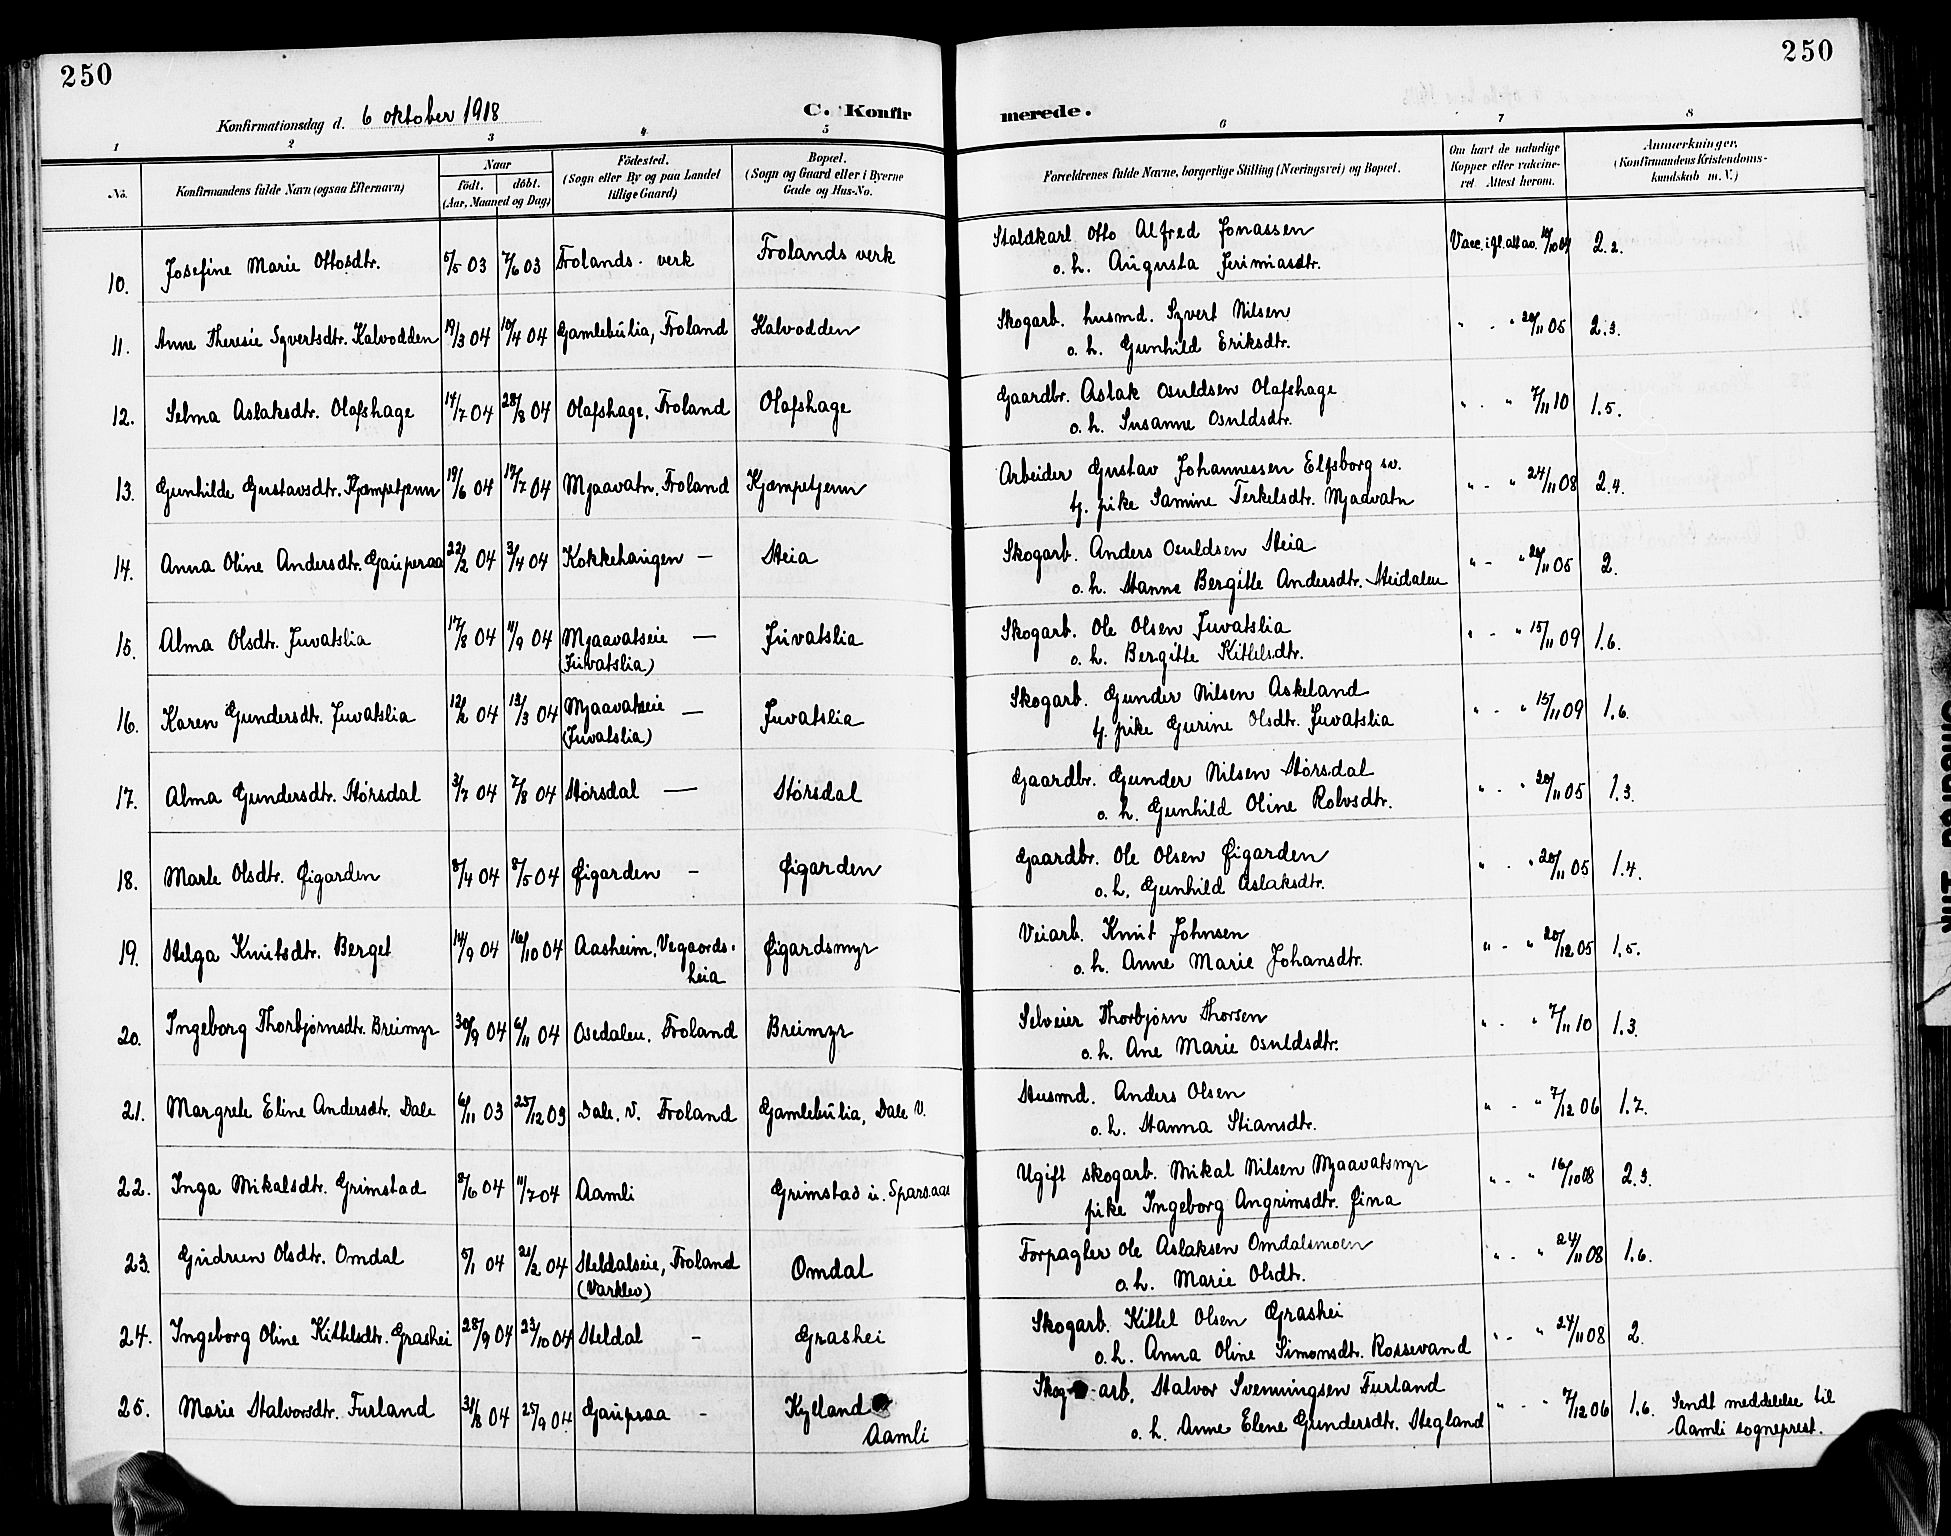 250
250
Konfirmationsdag d. 6 oktober 1918
C. Konfir
merede.
1 2 3 4 5 6 7 8
No.
Konfirmandens fulde Navn (ogsaa Efternavn)
Naar
födt. döbt.
(Aar, Maaned og Dag)
Födested.
(Sogn eller By og paa Landet
tillige Gaard)
Bopæl.
(Sogn og Gaard eller i Byerne
Gade og Hus-No.
Forældrenes fulde Navne, borgerlige Stilling (Næringsvei) og Bopæl.
Om havt de naturlige
Kopper eller vakcine-
ret Attest herom.
Anmærkninger.
(Konfirmandens Kristendoms-
kundskab m. V.)
10. Josefine Marie Ottosdtr. 5/5 03 7/6 03 Frolands verk Frolands verk Staldkarl Otto Alfred Jonassen Vacc. i fl. att av. 2.2.
o. h. Augusta Jerimiasdtr.
11. Anne Theresie Syvertsdtr. Kalvodden 19/3 04 10/4 04 Gamlebulia, Froland Kalvodden Skogarb. husmd. Syvert Nilsen " - " 20/11 05 2.3.
o. h. Gunhild Eriksdtr.
12. Selma Aslaksdtr. Olafshage 14/7 04 28/8 04 Olafshage, Froland Olafshage Gaardbr. Aslak Osuldsen Olafshage " - " 7/11 10 1.5.
o. h. Susanne Osuldsdtr.
13. Gunhilde Gustavsdtr. Kjæmpetjenn 19/6 04 17/7 04 Mjaavatn, Froland Kjæmpetjenn Arbeider Gustav Johannessen Elfsborg sv. " - " 24/11 08 2.4.
tj. pike Samine Terkelsdtr. Mjaavatn
14. Anna Oline Andersdtr. Gauperaa 22/2 04 3/4 04 Kokkehaugen — Heia Skogarb. Anders Osuldsen Heia " - " 20/11 05 2.
o. h. Hanne Bergitte Andersdtr. Heidalen
15. Alma Olsdtr. Juvatslia 17/8 04 11/9 04 Mjaavatseie — Juvatslia Skogarb. Ole Olsen Juvatslia " - " 15/11 09 1.6.
(Juvatslia) o. h. Bergitte Kittelsdtr.
16. Karen Gundersdtr. Juvatslia 12/2 04 13/3 04 Mjaavatseie — Juvatslia Skogarb. Gunder Nilsen Askeland " - " 15/11 09 1.6.
(Juvatslia) tj. pike Gurine Olsdtr. Juvatslia
17. Alma Gundersdtr. Hörsdal 3/7 04 7/8 04 Hörsdal — Hörsdal Gaardbr. Gunder Nilsen Hörsdal " - " 20/11 05 1.3.
o. h. Gunhild Oline Rolvsdtr.
18. Marte Olsdtr. Øigarden 8/4 04 8/5 04 Øigarden - Øigarden Gaardbr. Ole Olsen Øigarden " - " 20/11 05 1.4.
o. h. Gunhild Aslaksdtr.
19. Helga Knutsdtr. Berget 14/9 04 16/10 04 Aasheim, Vegaards- Øigardsmyr Veiarb. Knut Johnsen " - " 20/12 05 1.5.
heia o. h. Anne Marie Johansdtr.
20. Ingeborg Thorbjørnsdtr. Breimyr 30/9 04 6/11 04 Osedalen, Froland Breimyr Selveier Thorbjørn Thorsen " - " 7/11 10 1.3.
o. h. Ane Marie Osuldsdtr.
21. Margrete Eline Andersdtr. Dale 6/11 03 25/12 03 Dale, V. Froland Gamlebulia, Dale V. Husmd. Anders Olsen " - " 7/12 06 1.7.
o. h. Hanna Stiansdtr.
22. Inga Mikalsdtr. Grimstad 8/6 04 11/7 04 Aamli Grimstad u. Sparsaas Ugift skogarb. Mikal Nilsen Mjaavatsmyr " - " 16/10 08 2.3.
pike Ingeborg Angrimsdtr. Øina
23. Gudrun Olsdtr. Omdal 5/1 04 21/2 04 Heldalseie, Froland Omdal Forpagter Ole Aslaksen Omdalsmoen " - " 24/11 08 1.6.
(Varklev) o. h. Marie Olsdtr.
24. Ingeborg Oline Kittelsdtr. Grashei 28/9 04 23/10 04 Heldal - Grashei Skogarb. Kittel Olsen Grashei " - " 24/11 08 2.
o. h. Anna Oline Simonsdtr. Rossevand
25. Marie Halvorsdtr. Furland 31/8 04 25/9 04 Gaupraa - Kylland Skog-arb. Halvor Svenningsen Furland " - " 7/12 06 1.6. Sendt meddelelse til
Aamli o. h. Anne Elene Gundersdtr. Hegland Aamli sogneprest.